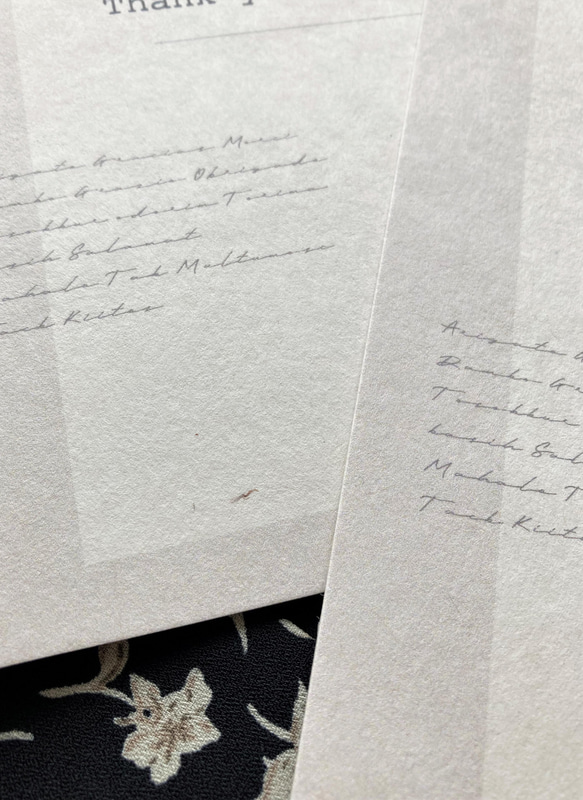 Thank
Gracias Merci
Grazie Obrigado
ederim Terima
Salamat
Tak Multumesc
Kiitos
Arigato
Danke Gr
Tesekkur
kasih Sal
Mahalo T
Tack Kiito